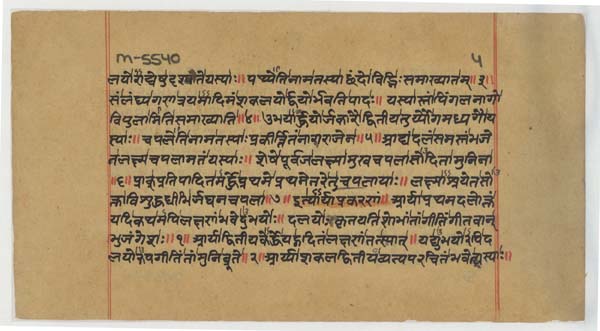 m-5540 ५
लयोराद्येषु दृश्यते यस्याः॥ पथ्येति नाम तस्या छंदोविद्भिः समाख्यातम्॥३॥
संलंघ्य गणत्रयमादिमं शकलयोर्द्वयोर्भवति पादः॥ यस्यास्तां पिंगलनागो
विपुलामिति समाख्याति॥४॥ उभयार्द्धयोर्जकारौ द्वितीयतुर्य्यौ गमध्यगौ य
स्याः॥ चपलेति नाम तस्याः प्रकीर्त्तितं नागराजेन॥५॥ आद्यं दलं समस्तं भजे
त लक्ष्म चपलागतं यस्याः॥ शेषे पूर्वजलक्ष्मा मुखचपला सोदिता मुनिना
॥६॥ प्राक्प्रतिपादितमर्द्धे प्रथमे प्रथमेतरे तु चपलायाः॥ लक्ष्माश्रयेत सो
क्ता विशुद्धधीभिर्जघनचपला॥७॥ इत्यार्याप्रकरणं॥ आर्याप्रथमदलोक्तं
यदि कथमपि लक्षणं भवेदुभयोः॥ दलयोः कृतयतिशोभां तां गीतिं गीतवान्
भुजंगेशः॥१॥ आर्याद्वितीयकेर्द्धे यद्गदितं लक्षणं तत्स्यात्॥ यद्युभयोरपि द
लयोरुपगीतिं तां मुनिर्ब्रूते॥२॥ आर्य्याशकलद्वितीयं व्यत्ययरचितं भवेद्यस्याः॥